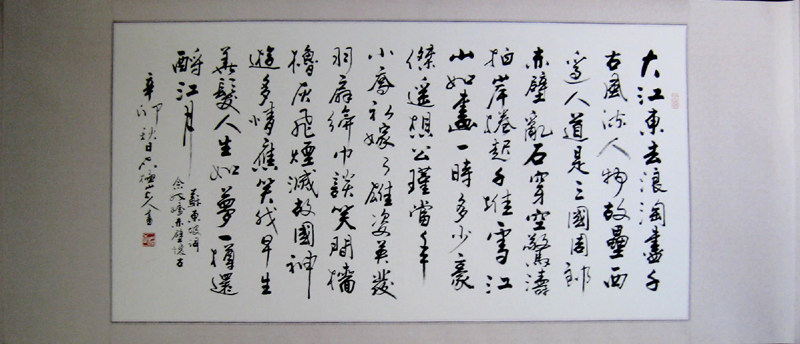 大江東去浪淘盡千
古風流人物故壘西
邊人道是三國周郎
赤壁亂石穿空驚濤
拍岸捲起千堆雪江
山如畫一時多少豪
傑遥想公瑾當年
小喬初嫁了雄姿英發
羽扇綸巾談笑間檣
櫓灰飛煙滅故國神
遊多情應笑我早生
華髮人生如夢一樽還
酹江月
蘇東坡詞
念奴嬌赤壁懷古
辛卯秋日山人書